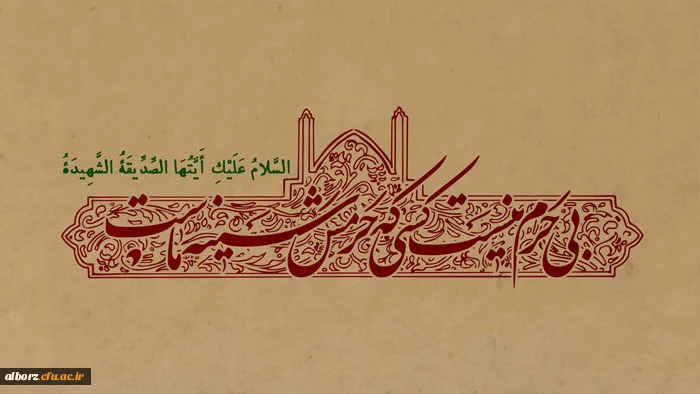 السَّلامُ عَلَيْكِ أَيَّتُهَا الصِّدِّيقَةُ الشَّهِيدَةُ
بی حرم نیست کسی که حرمش سینه ماست
alborz.cfu.ac.ir